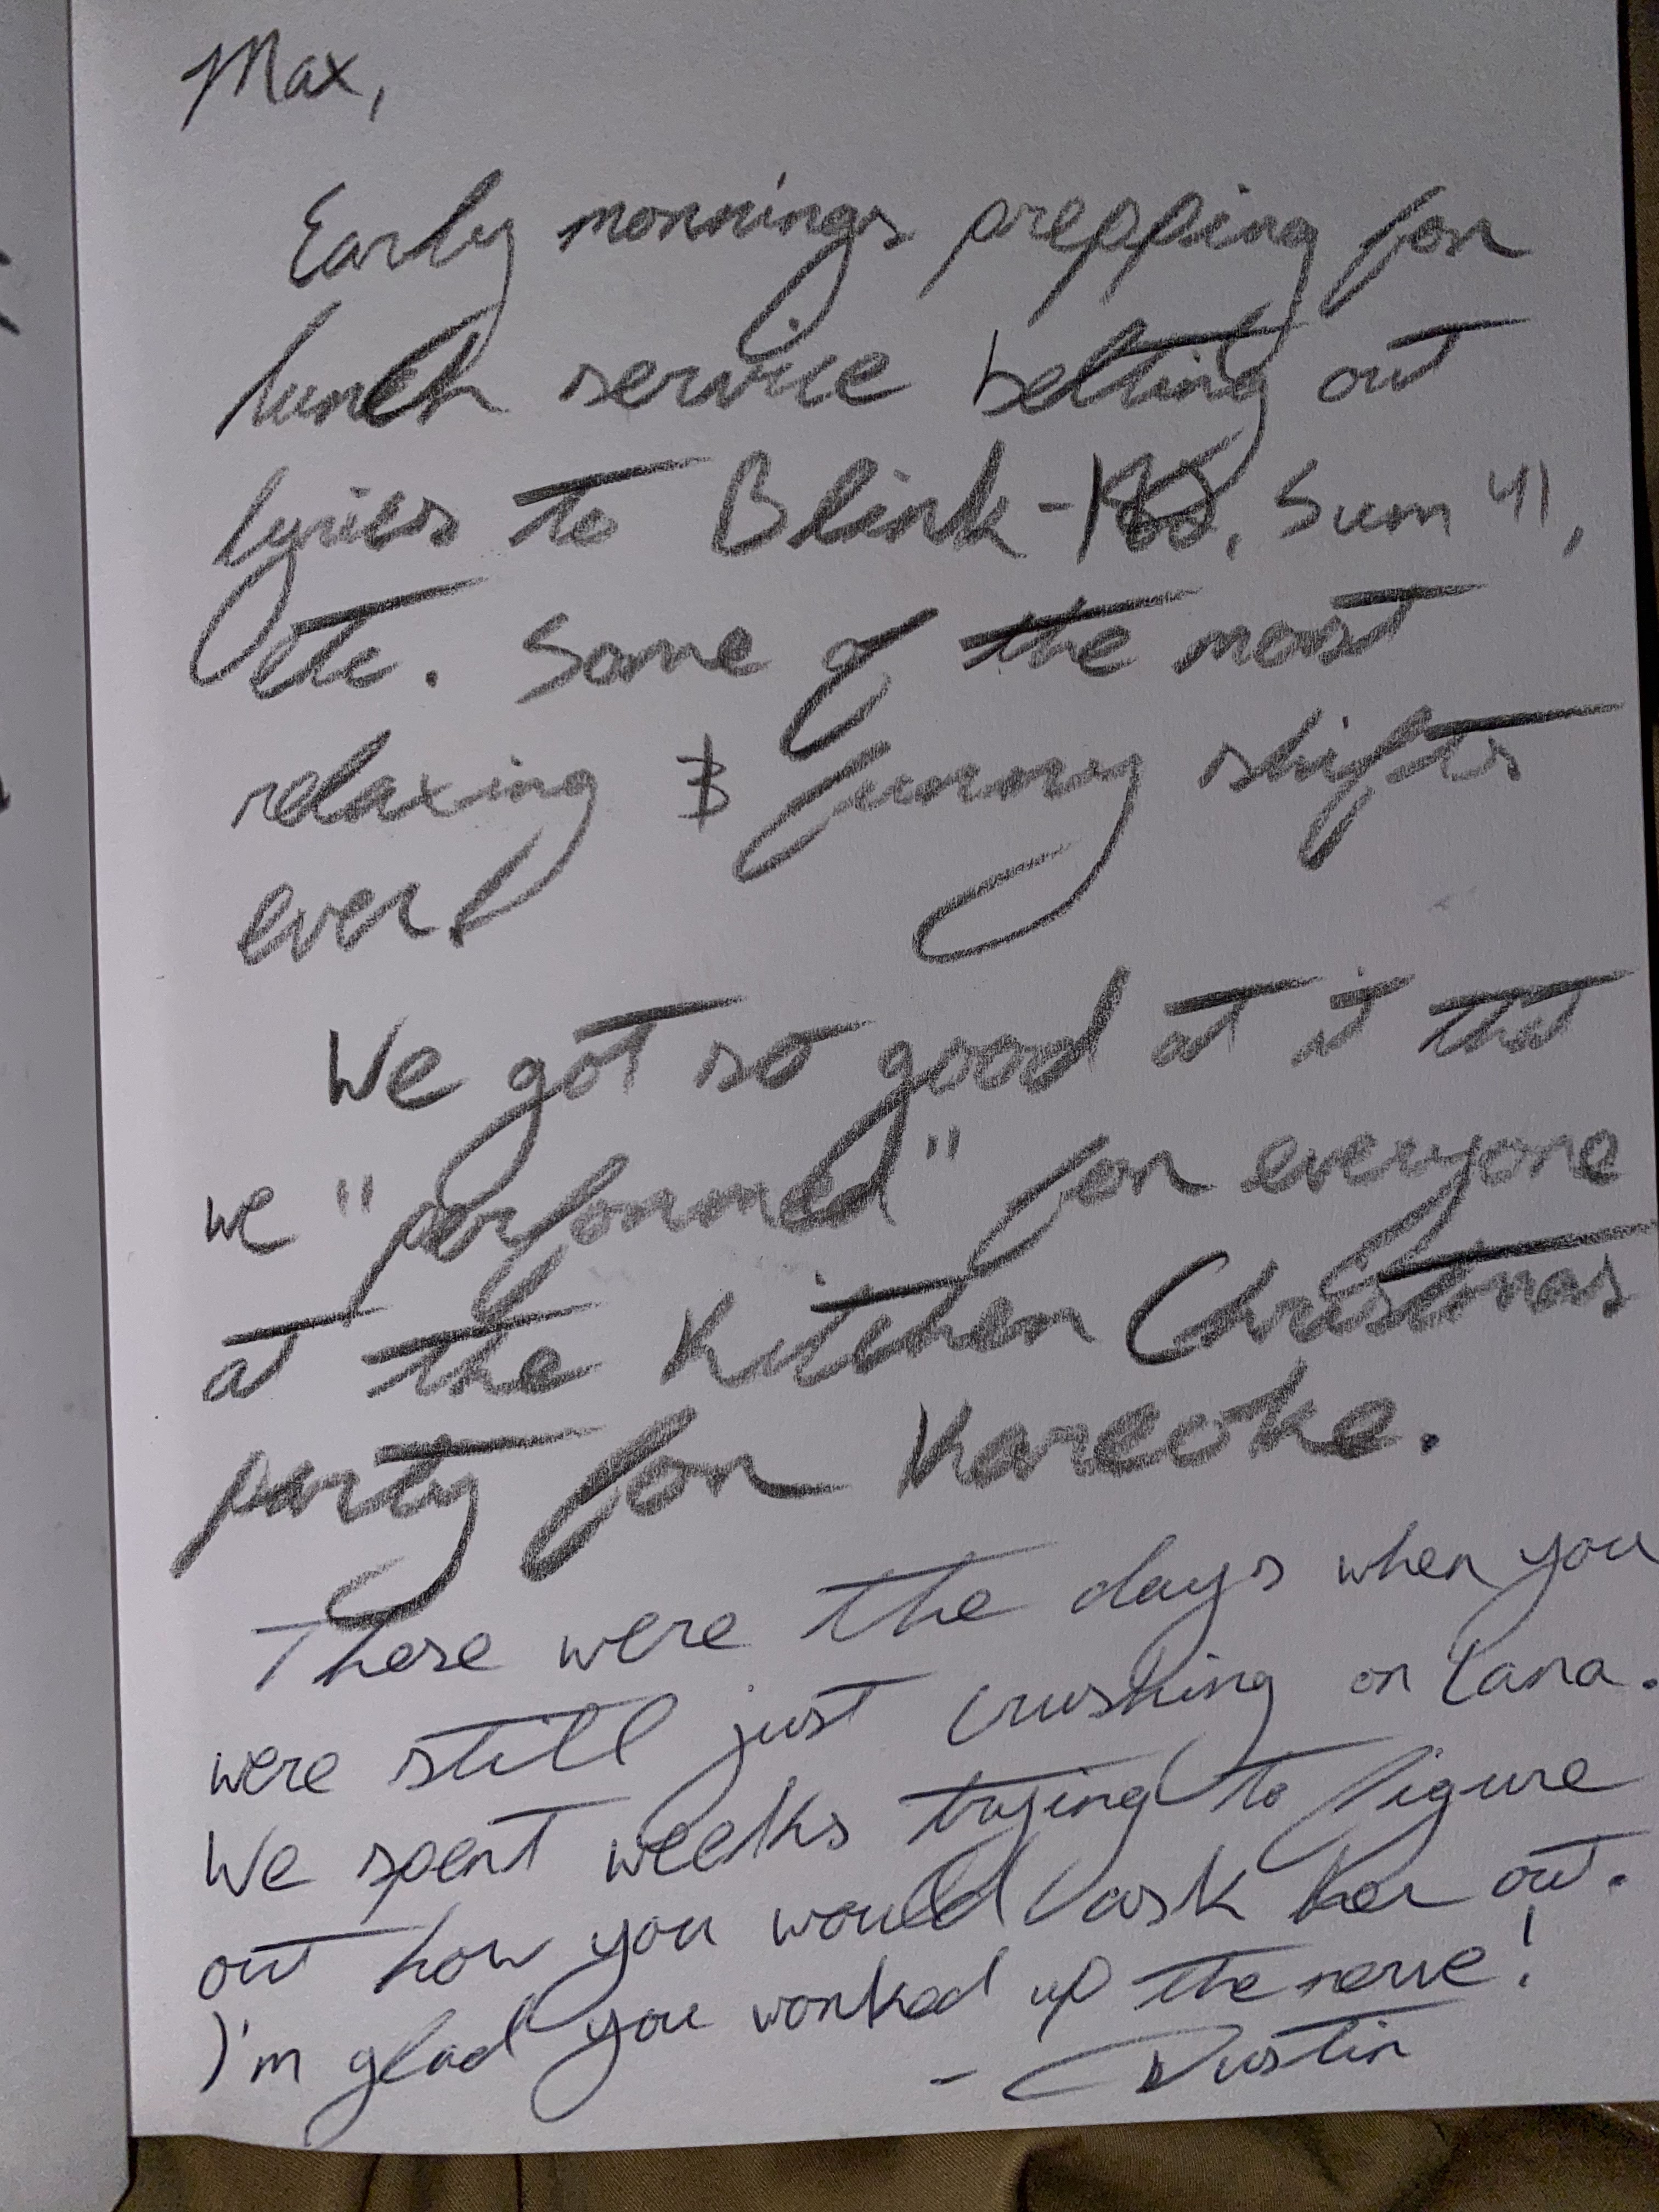 Max,
Early mornings prepping for
lunch service belting out
lyrics to Blink-182, Sum 41,
etc. Some of the most
relaxing & funny shifts
ever!
We got so good at it that
we "performed" for everyone
at the Kitchen Christmas
party for Kareoke.
These were the days when you
were still just crushing on Lana.
We spent weeks trying to figure
out how you would ask her out.
I'm glad you worked up the nerve!
- Dustin